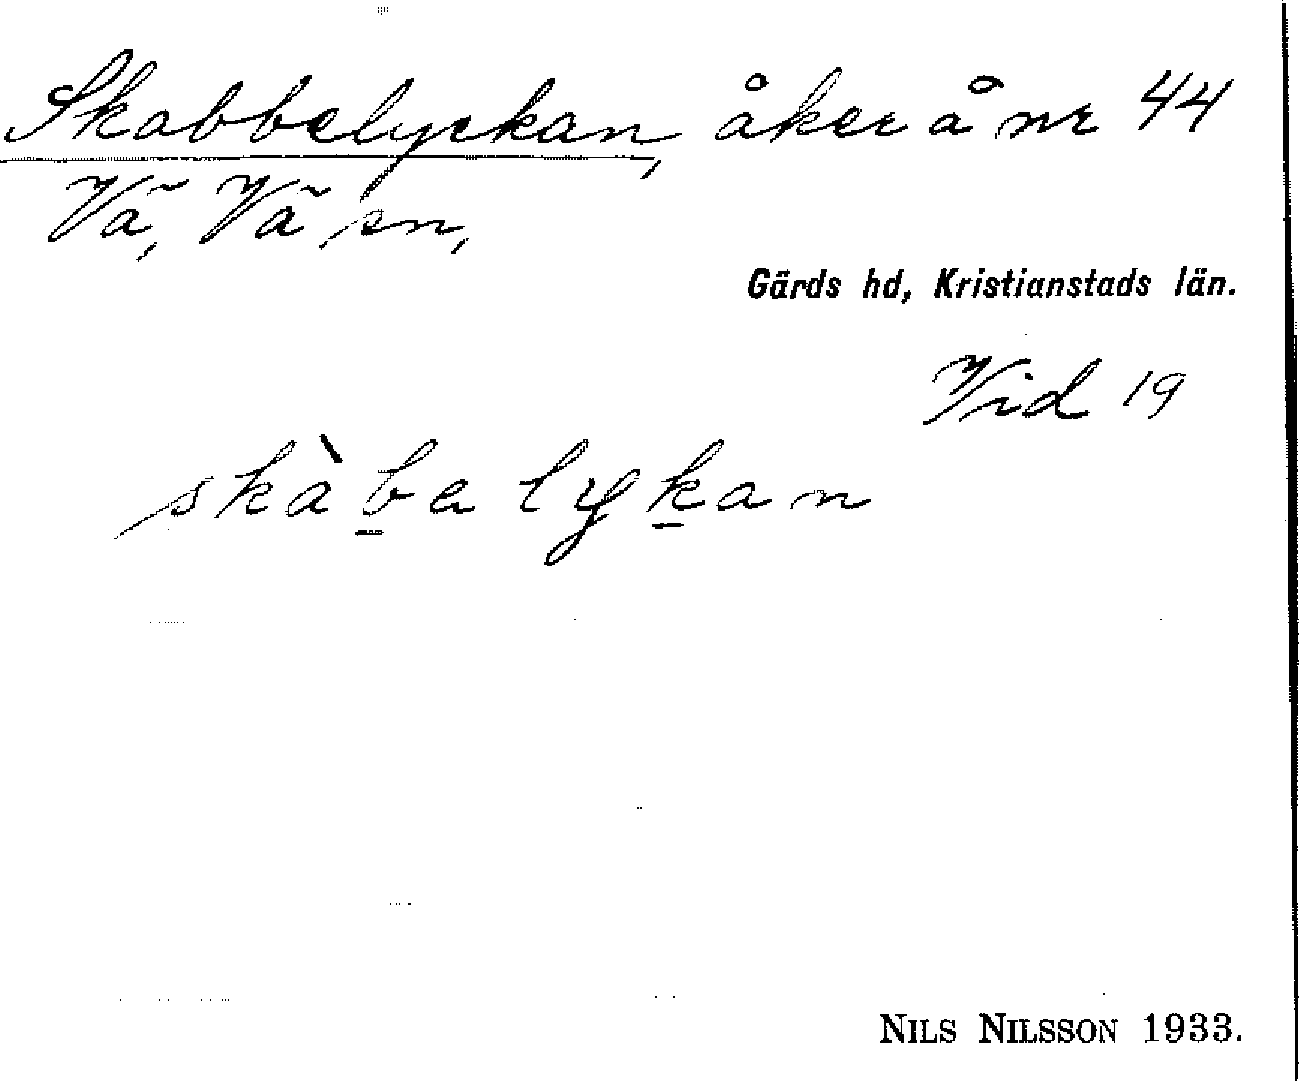 Skabbelyckan, åker å nr 44
Vä, Vä sn,
Gärds hd, Kristianstads län.
Vid 19
skàb̲a lyk̲an
NILS NILSSON 1933.